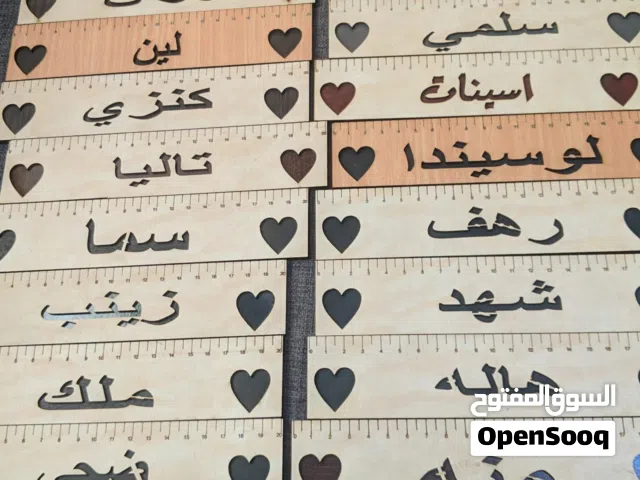 سلمي
لين
اسينات
كنزي
لوسيندا
تاليا
رهف
سما
شهد
زينب
هاله
ملك
السوق المفتوح
OpenSooq